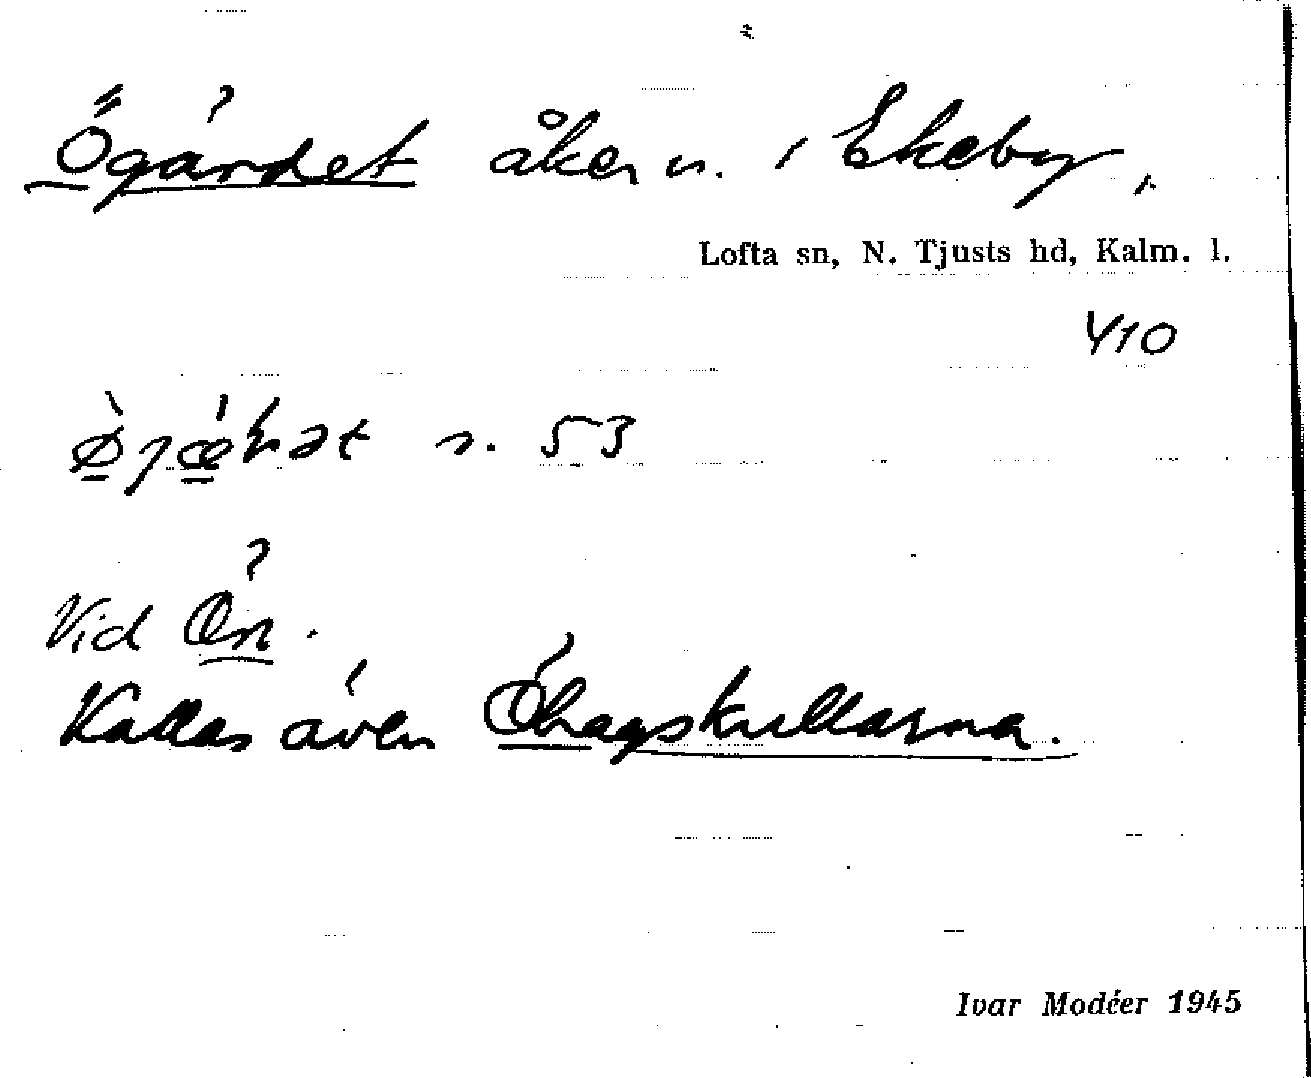 Ögärdet åker n. i Ekeby,
Lofta sn, N. Tjusts hd, Kalm. l.
410
s. 53
Vid Ön.
Kallas även Öhagskullarna.
Ivar Modéer 1945